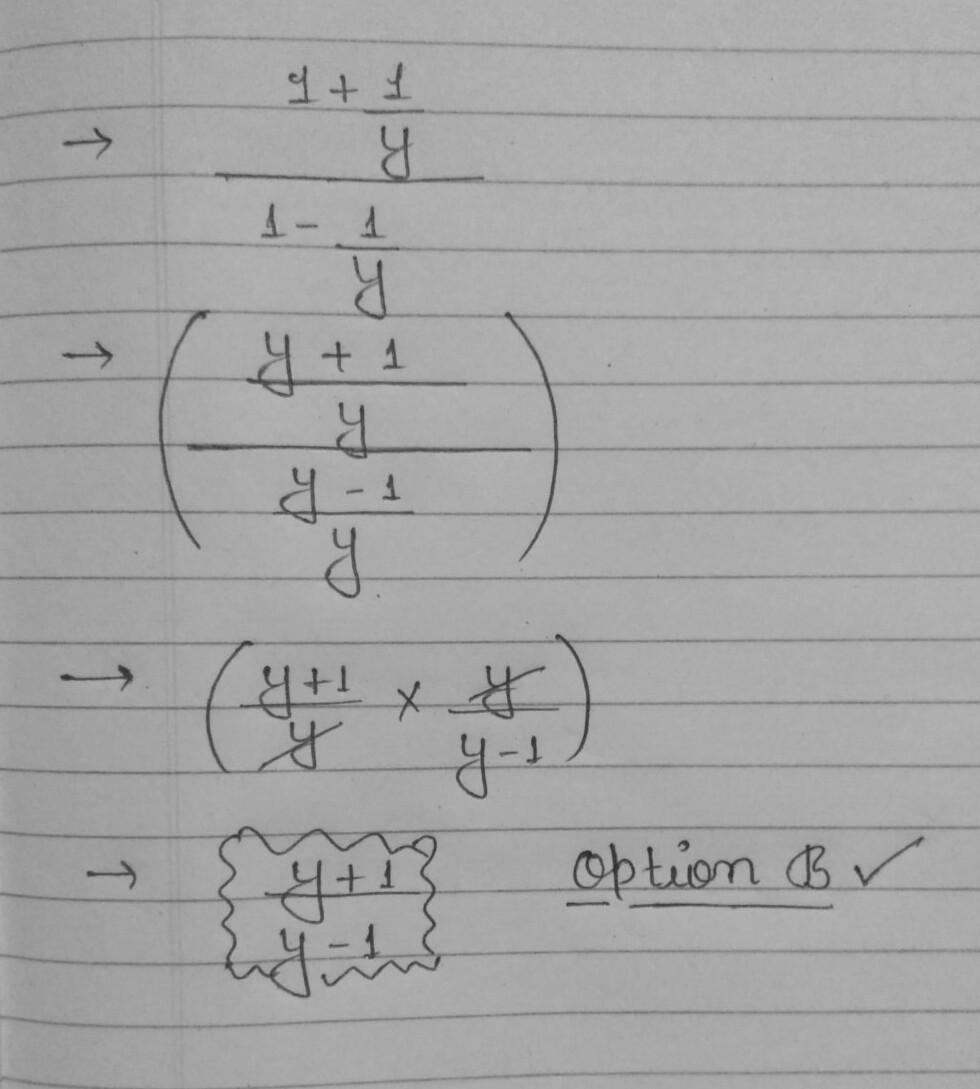 → 1 + 1/y
1 - 1/y
→ ( y + 1
y
y - 1
y )
→ ( y+1/y × y/y-1 )
→ y+1 Option B ✓
y-1